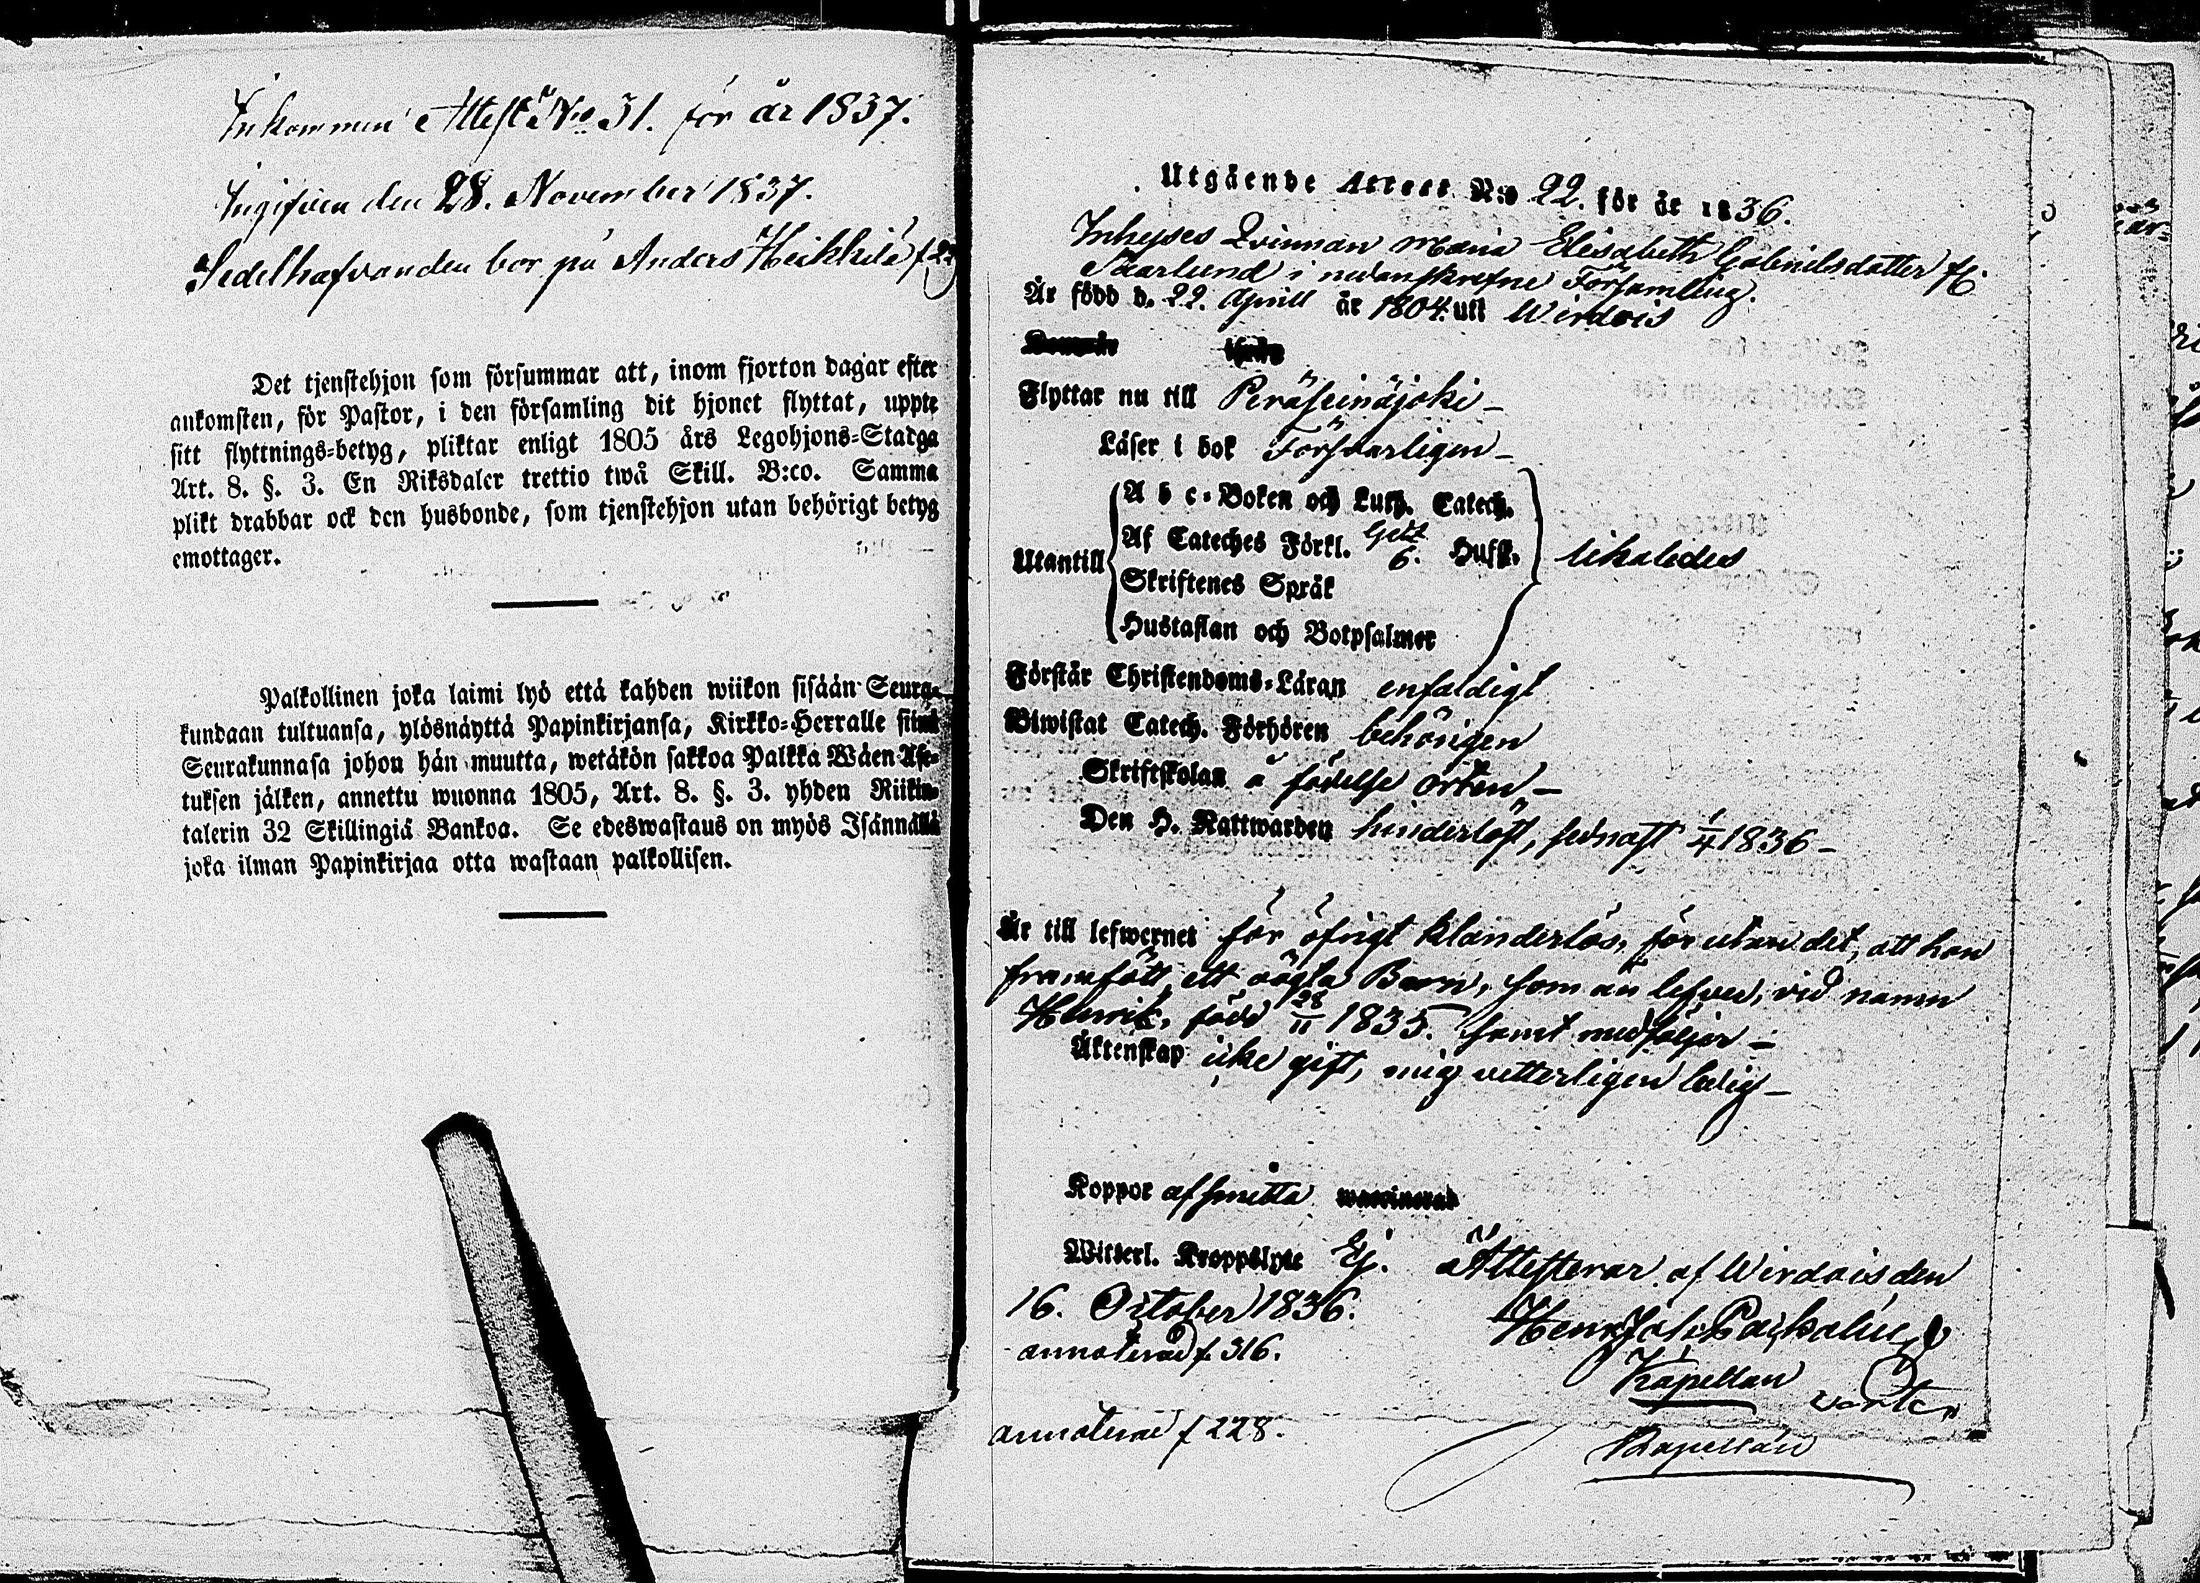 Inkommen Attest No 31. för år 1837.
Ingifven den 28. November 1837.
Sedelhafvanden bor på Anders Heikkilä f 22
Det tjenstehjon som försummar att, inom fjorton dagar efter
ankomsten, för Pastor, i den församling dit hjonet flyttat, uppte
sitt flyttnings-betyg, pliktar enligt 1805 års Legohjons-Stadga
Art. 8. §. 3. En Riksdaler trettio twå Skill. B:co. Samma
plikt drabbar ock den husbonde, som tjenstehjon utan behörigt betyg
emottager.
Palkollinen joka laimi lyö että kahden wiikon sisään Seura-
kundaan tultuansa, ylösnäyttä Papinkirjansa, Kirkko-Herralle siinä
Seurakunnasa johon hän muutta, wetäkön sakkoa Palkka Wäen Ase-
tuksen jälken, annettu wuonna 1805, Art. 8. §. 3. yhden Riikin-
talerin 32 Skillingiä Bankoa. Se edeswastaus on myös Isännällä
joka ilman Papinkirjaa otta wastaan palkollisen.
Utgående Attest N:o 22. för år 1836.
Inhyses Qvinnan Maria Elisabeth Gabrielsdotter fr.
Saarlund i nedanskrefne Församling.
Är född d. 22. Aprill år 1804. uti Wirdois
Flyttar nu till Peräseinäjoki -
Läser i bok Försvarligen -
Utantill
A b c-Boken och Luth. Catech.
Af Cateches Förkl. 6. Hufst.
Skriftenes Språk
Hustaflan och Botpsalmer
likaledes
Förstår Christendoms-Läran enfaldigt
Biwistat Catech. Förhören behörigen
Skriftskolan å födelse orten -
Den H. Nattwarden hinderlöst, sednast 1/4 1836 -
Är till lefwernet för öfrigt klanderlös, för utan det, att hon
framfödt ett oägta Barn, som än lefver, vid namn
Henrik, född 28/11 1835. samt medföljer -
Äktenskap icke gift, mig vetterligen ledig -
Koppor af smitta waccinerad
Witterl. Kroppslyte Ej. Attesterar af Wirdois den
16. October 1836.
annoterad f 316.
Kapellan
annoterad f 228.
Kapellan